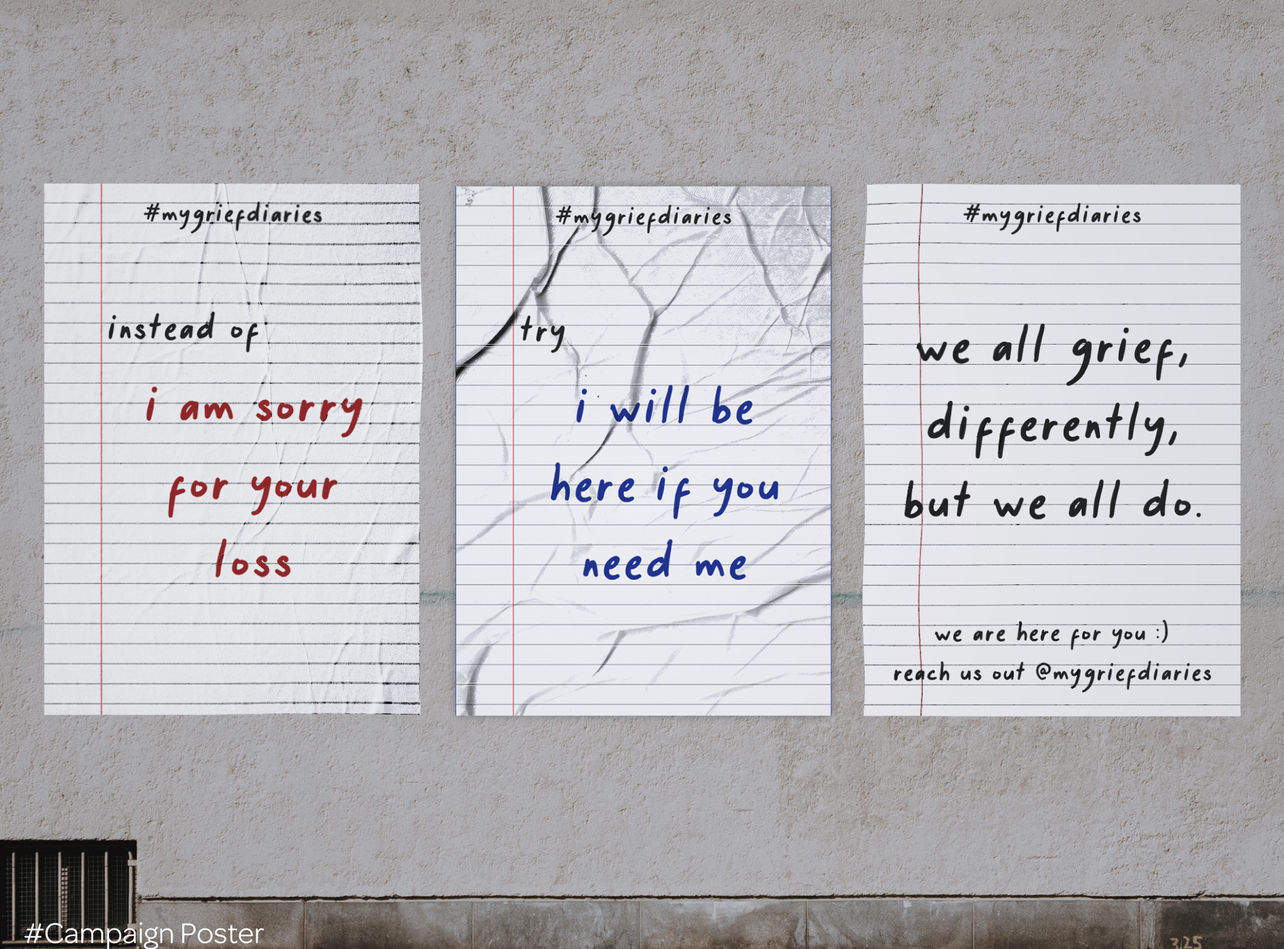 #mygriefdiaries
instead of
i am sorry
for your
loss
#mygriefdiaries
try
i will be
here if you
need me
#mygriefdiaries
we all grief,
differently,
but we all do.
we are here for you :)
reach us out @mygriefdiaries
#Campaign Poster
325